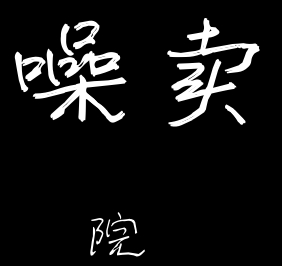 噪卖
院